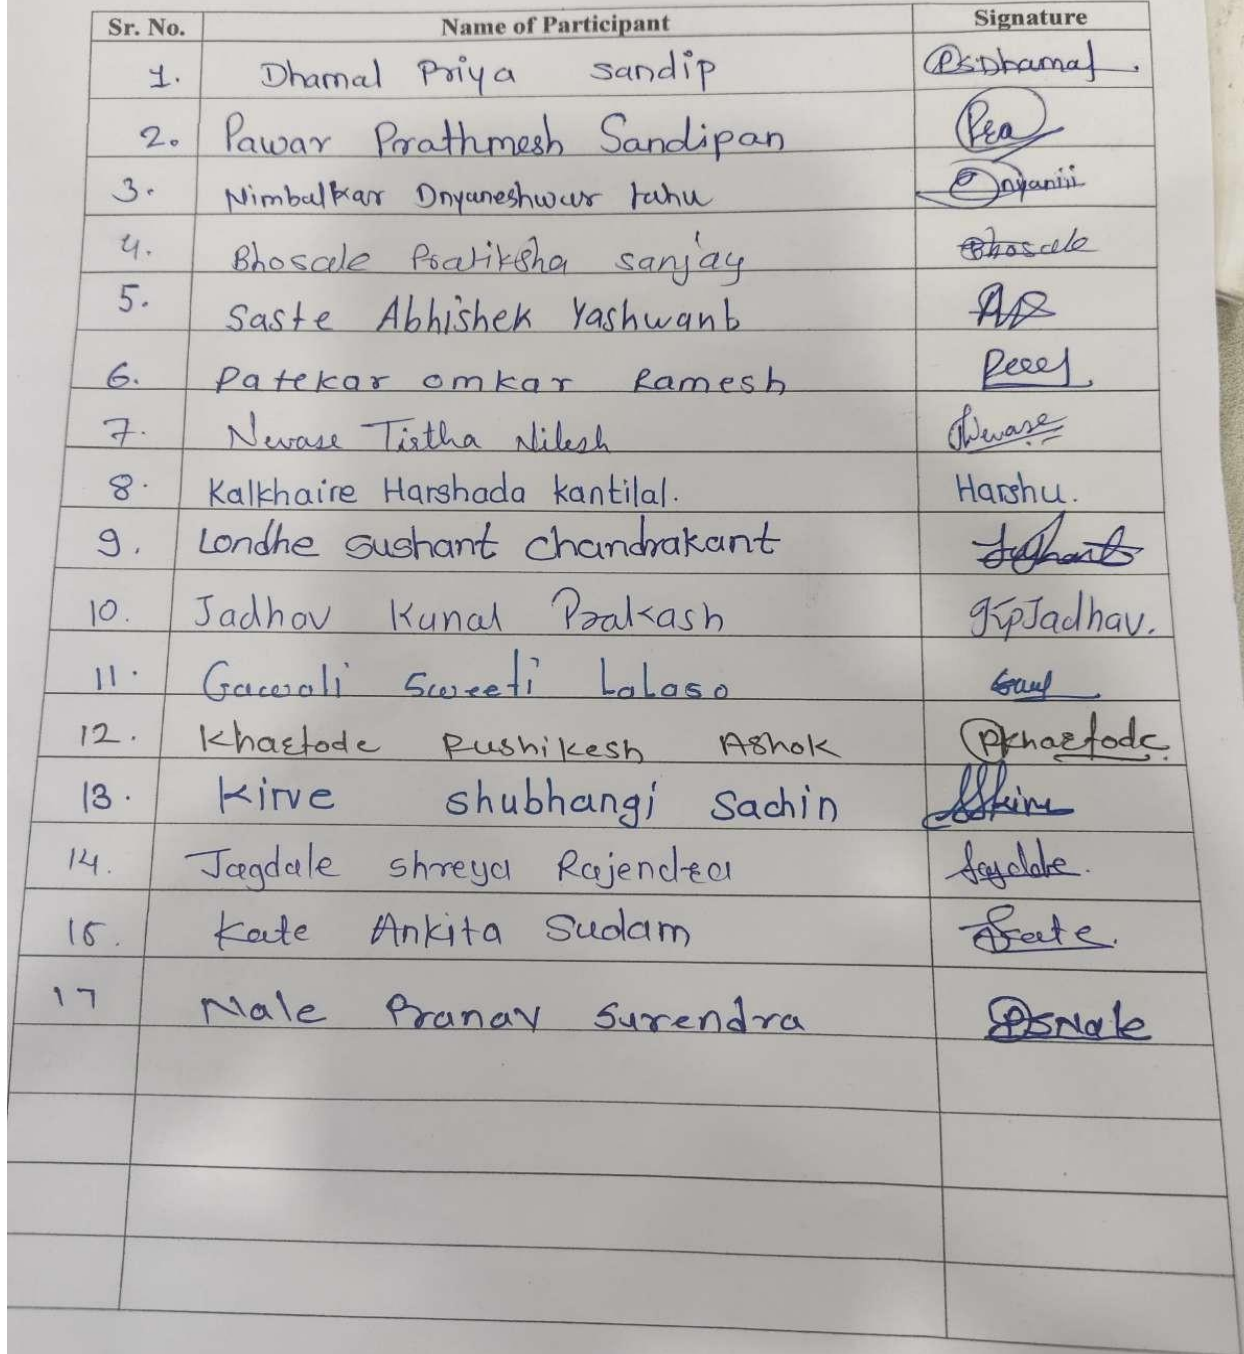 Sr. No. Name of Participant Signature
1. Dhamal Priya Sandip PSDhamal.
2. Pawar Prathmesh Sandipan
3. Nimbalkar Dnyaneshwar tahu
4. Bhosale Pratiksha sanjay Bhosale
5. Saste Abhishek Yashwant
6. Patekar omkar Ramesh
7. Nevase Tirtha Nilesh Nevase
8. Kalkhaire Harshada kantilal. Harshu.
9. Londhe Sushant Chandrakant
10. Jadhav Kunal Prakash KpJadhav.
11. Gawali Sweeti Lalaso
12. Khartode Rushikesh Ashok Rkhartode
13. Kirve shubhangi Sachin
14. Jagdale shreya Rajendra Jagdale.
15. Kate Ankita Sudam
17 Nale Pranav Surendra PSNale